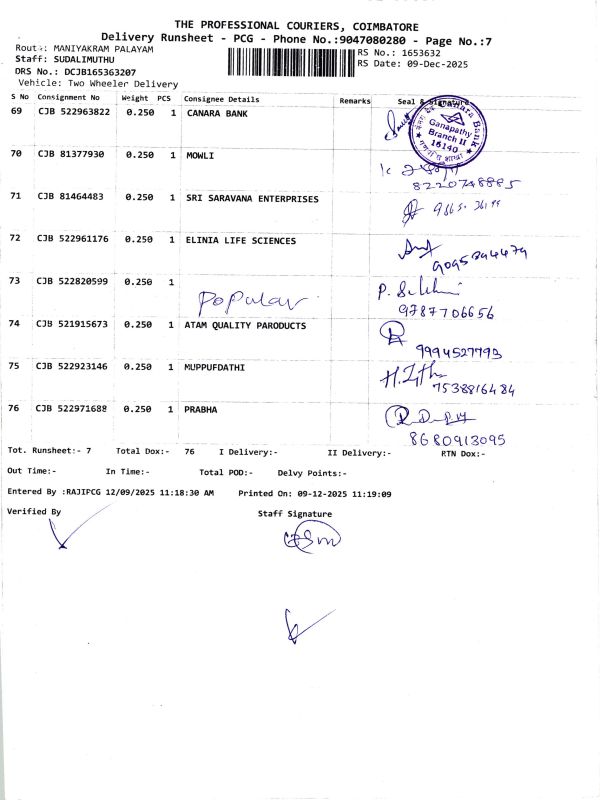 THE PROFESSIONAL COURIERS, COIMBATORE
Delivery Runsheet - PCG - Phone No.:9047080280 - Page No.:7
Route: MANIYAKRAM PALAYAM
Staff: SUDALIMUTHU
DRS No.: DCJB165363207
Vehicle: Two Wheeler Delivery
RS No.: 1653632
RS Date: 09-Dec-2025
S No Consignment No Weight PCS Consignee Details Remarks Seal & Signature
69 CJB 522963822 0.250 1 CANARA BANK
Canara Bank
Ganapathy
Branch II
16140
70 CJB 81377930 0.250 1 MOWLI
8220748885
71 CJB 81464483 0.250 1 SRI SARAVANA ENTERPRISES
72 CJB 522961176 0.250 1 ELINIA LIFE SCIENCES
9095394479
73 CJB 522820599 0.250 1
Popular
9787706656
74 CJB 521915673 0.250 1 ATAM QUALITY PARODUCTS
9994527793
75 CJB 522923146 0.250 1 MUPPUFDATHI
7538816484
76 CJB 522971688 0.250 1 PRABHA
8680913095
Tot. Runsheet:- 7 Total Dox:- 76 I Delivery:- II Delivery:- RTN Dox:-
Out Time:- In Time:- Total POD:- Delvy Points:-
Entered By :RAJIPCG 12/09/2025 11:18:30 AM Printed On: 09-12-2025 11:19:09
Verified By Staff Signature